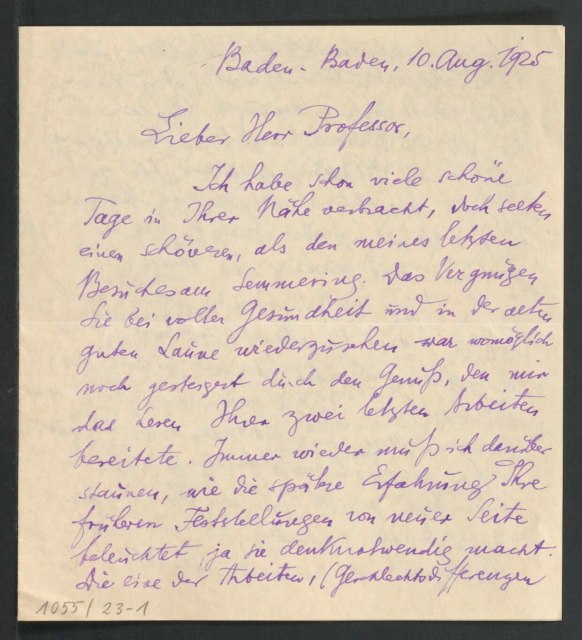 Baden-Baden, 10. Aug. 1925
Lieber Herr Professor,
Ich habe schon viele schöne
Tage in Ihrer Nähe verbracht, doch selten
einen schöneren, als den meines letzten
Besuches am Semmering. Das Vergnügen
Sie bei voller Gesundheit und in der alten
guten Laune wiederzusehen war womöglich
noch gesteigert durch den Genuß, den mir
das Lesen Ihrer zwei letzten Arbeiten
bereitete. Immer wieder muß ich darüber
staunen, wie die spätere Erfahrung Ihre
früheren Feststellungen von neuer Seite
beleuchtet, ja sie denknotwendig macht.
Die eine der Arbeiten, (Geschlechtsdifferenzen
1055/23-1